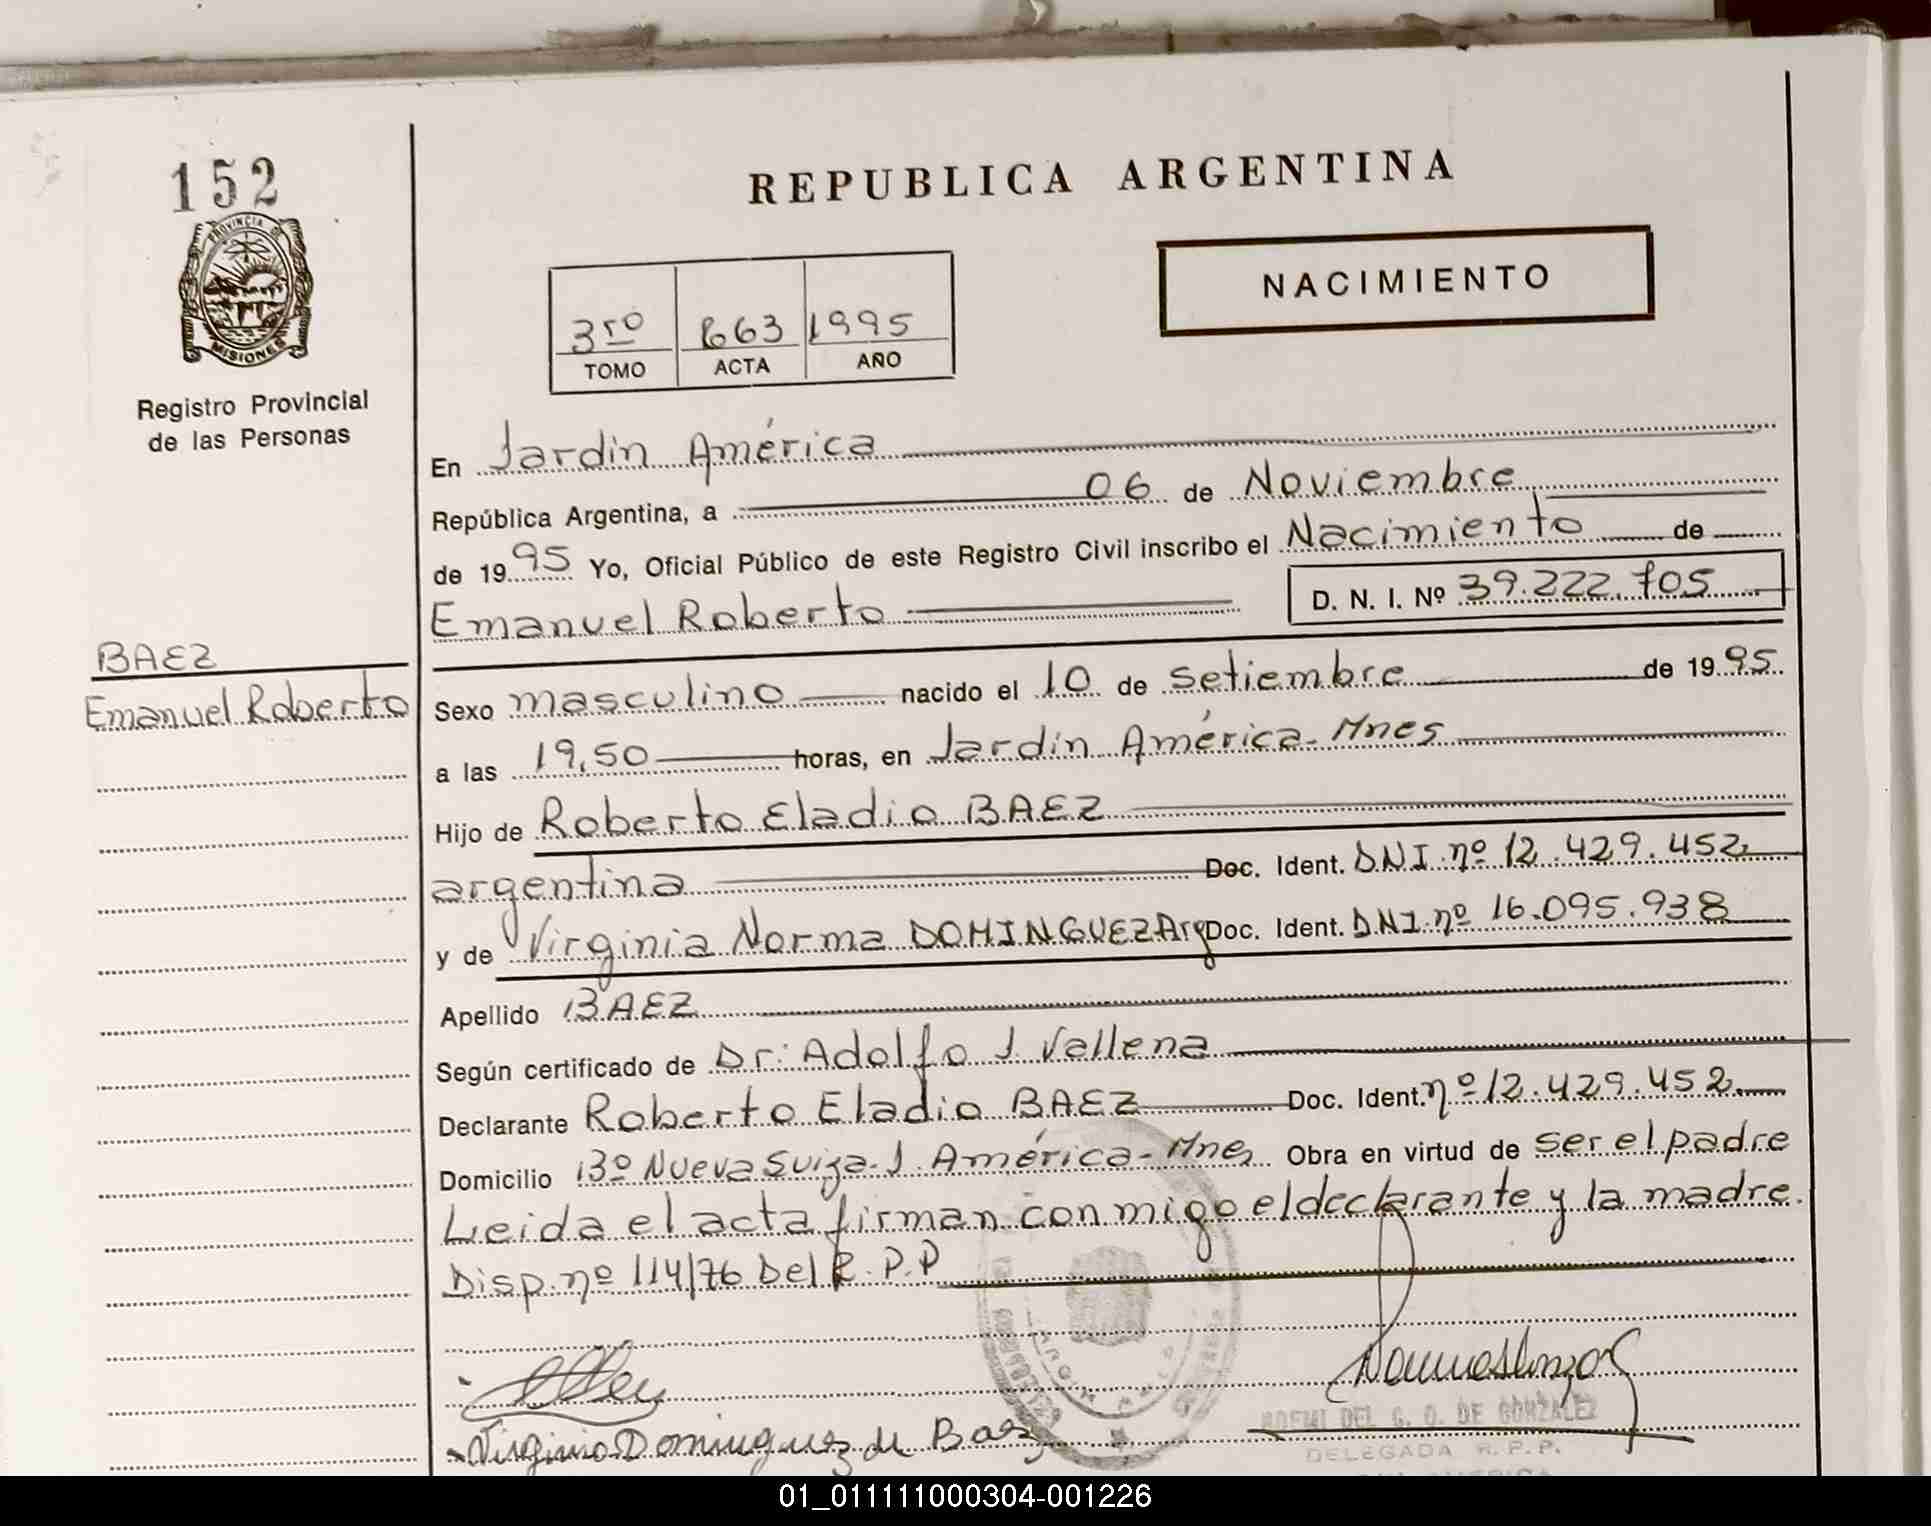 152
PROVINCIA DE
MISIONES
Registro Provincial
de las Personas
REPUBLICA ARGENTINA
NACIMIENTO
3ro 663 1995
TOMO ACTA AÑO
En Jardín América
República Argentina, a 06 de Noviembre
de 1995 Yo, Oficial Público de este Registro Civil inscribo el Nacimiento de
Emanuel Roberto D. N. I. Nº 39.222.705
BAEZ
Emanuel Roberto
Sexo masculino nacido el 10 de setiembre de 1995
a las 19,50 horas, en Jardín América-Mnes
Hijo de Roberto Eladio BAEZ
argentina Doc. Ident. DNI nº 12.429.452
y de Virginia Norma DOMINGUEZ Arg Doc. Ident. DNI nº 16.095.938
Apellido BAEZ
Según certificado de Dr: Adolfo J. Vallena
Declarante Roberto Eladio BAEZ Doc. Ident. nº 12.429.452
Domicilio Bº Nueva Suiza-J. América-Mnes Obra en virtud de ser el padre
Leida el acta firman conmigo el declarante y la madre.
Disp. nº 114/76 Del R.P.P
Virginia Dominguez de Baez
NOEMI DEL C. O. DE GONZALEZ
DELEGADA R.P.P.
01_011111000304-001226